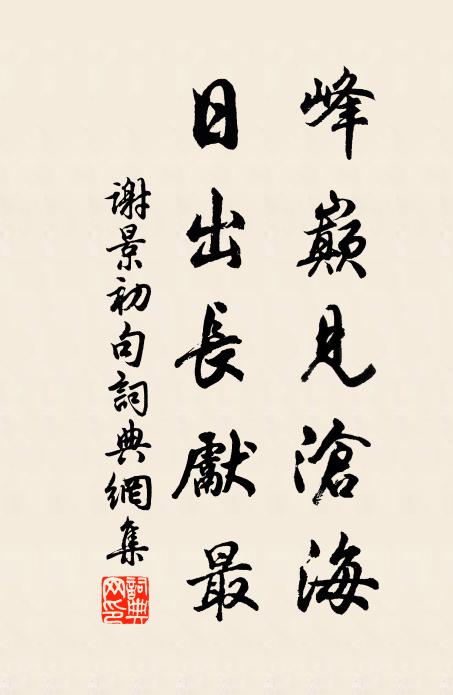 峰巔見滄海
日出長獻最
謝景初句詞典網集
詞典網印